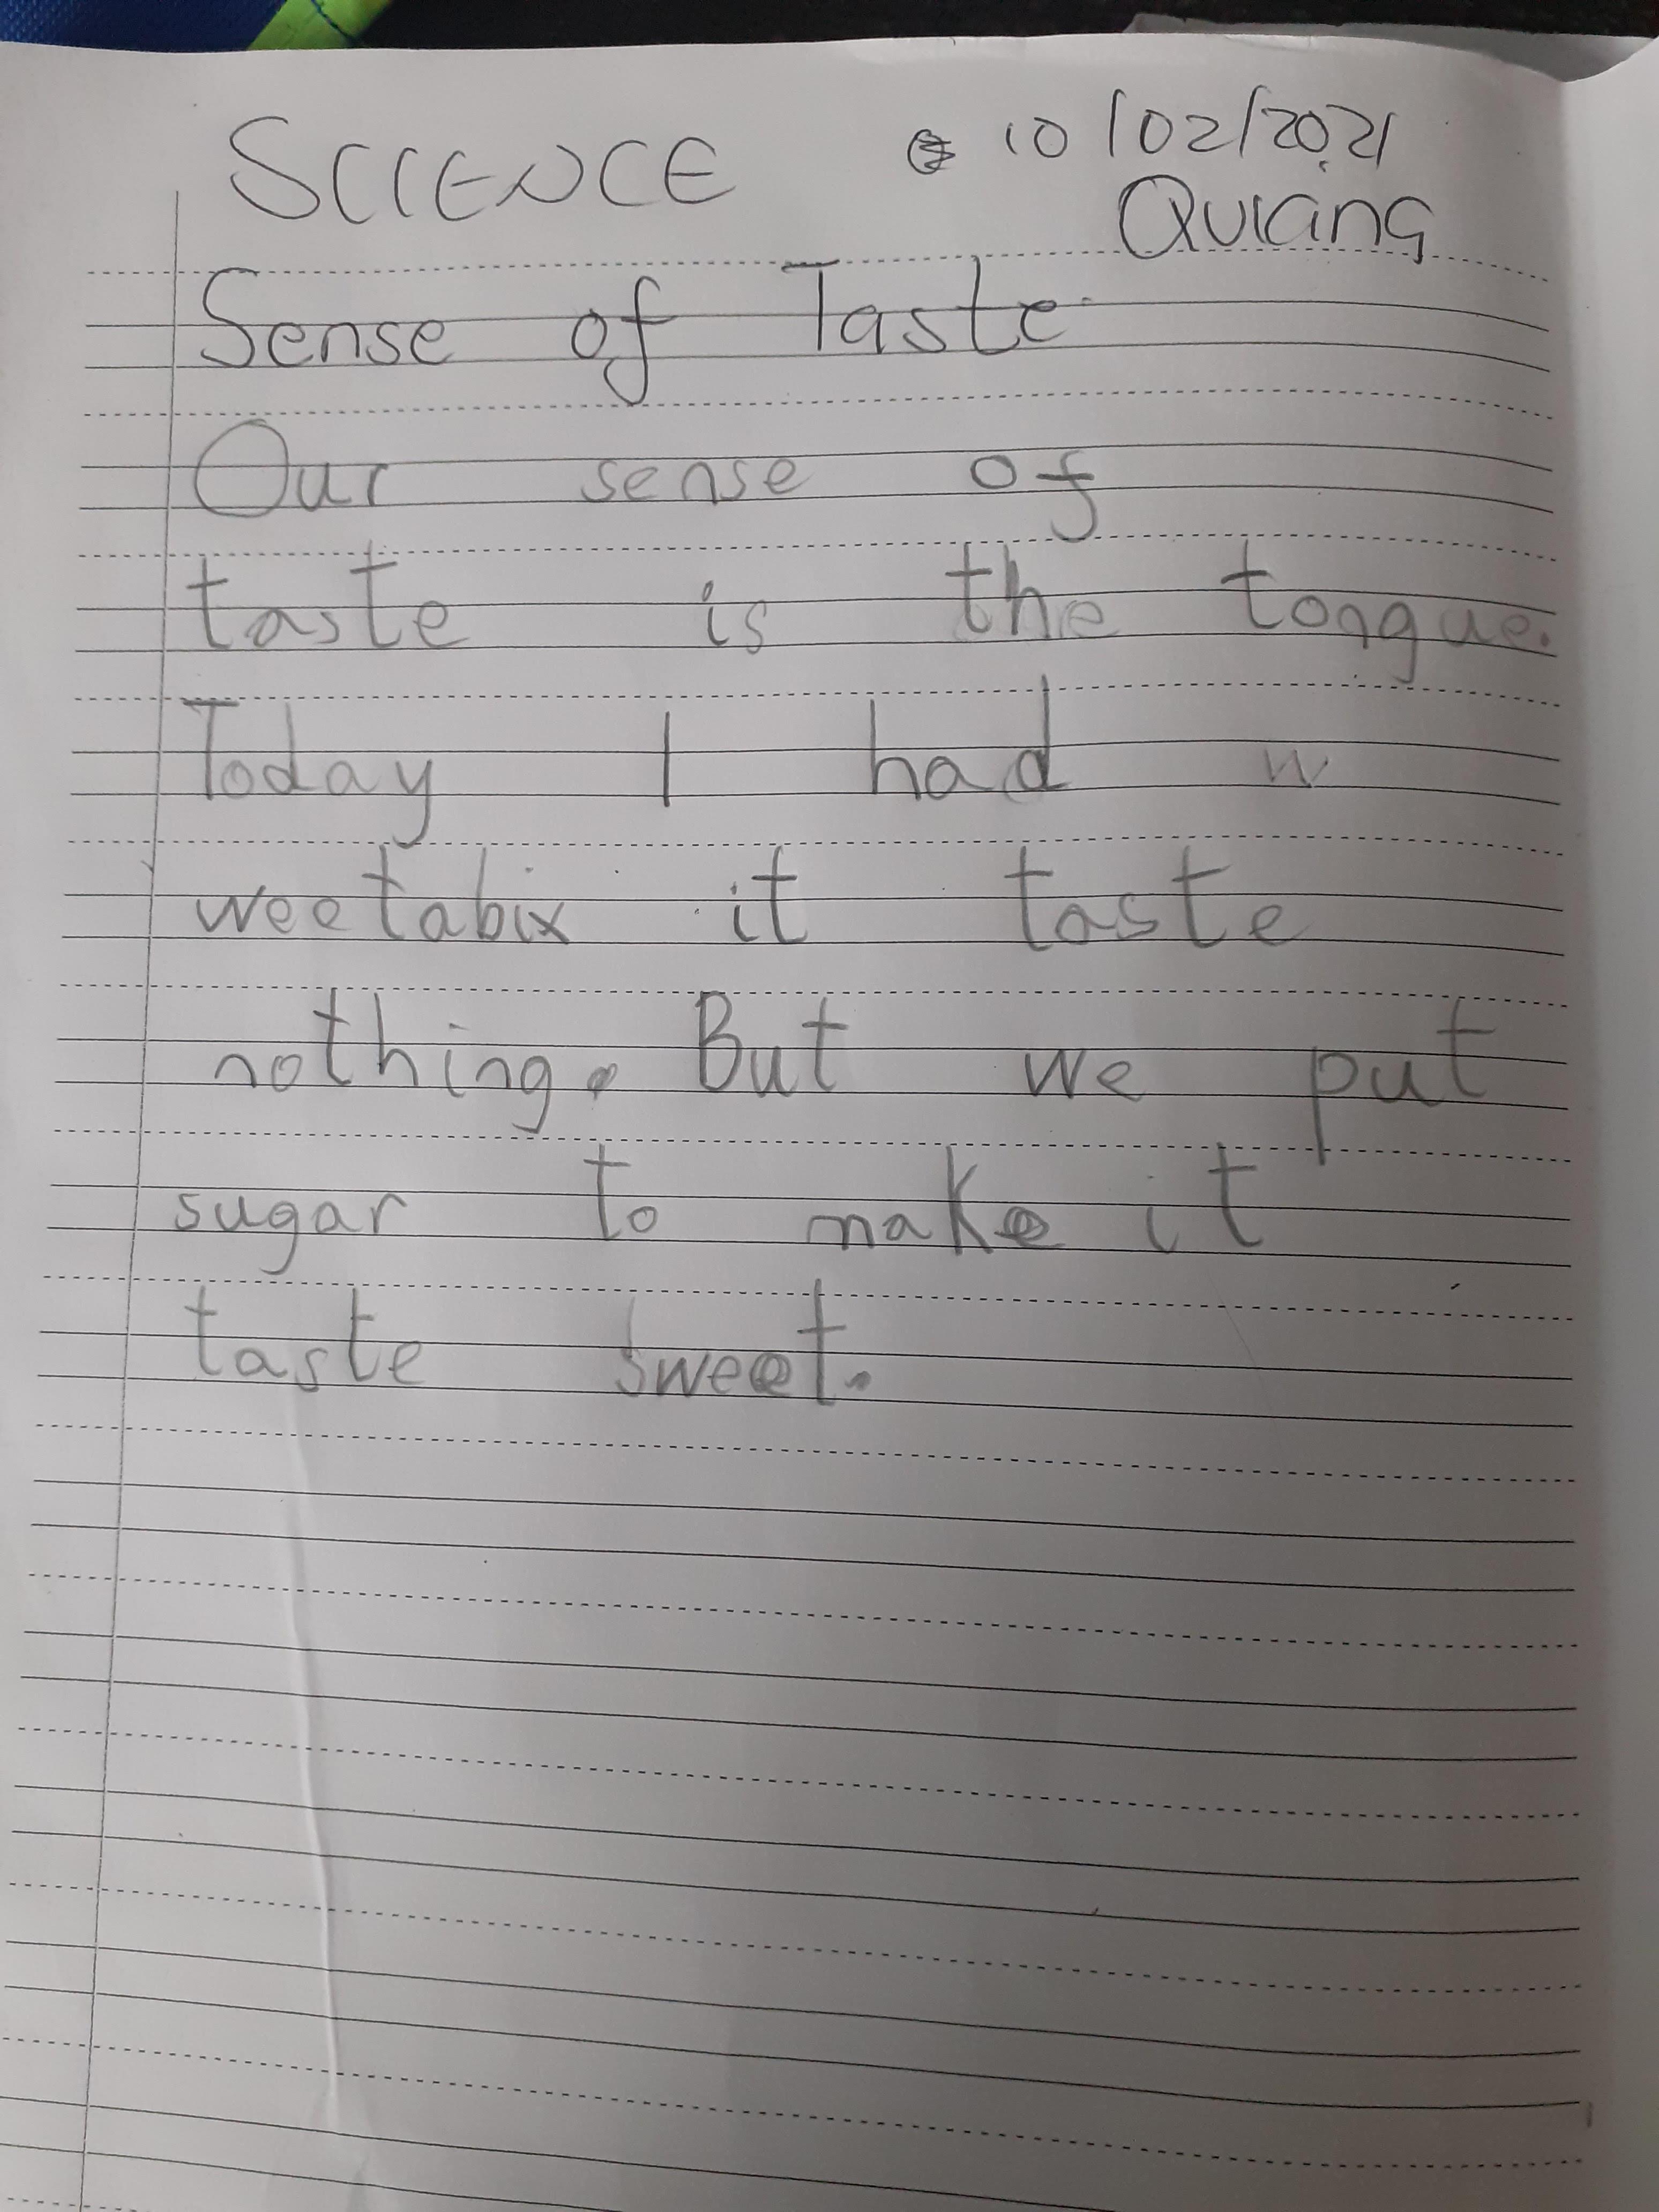 SCIENCE 10/02/2021
Quiang
Sense of Taste
Our sense of
taste is the tongue.
Today I had w
weetabix it taste
nothing. But we put
sugar to make it
taste sweet.